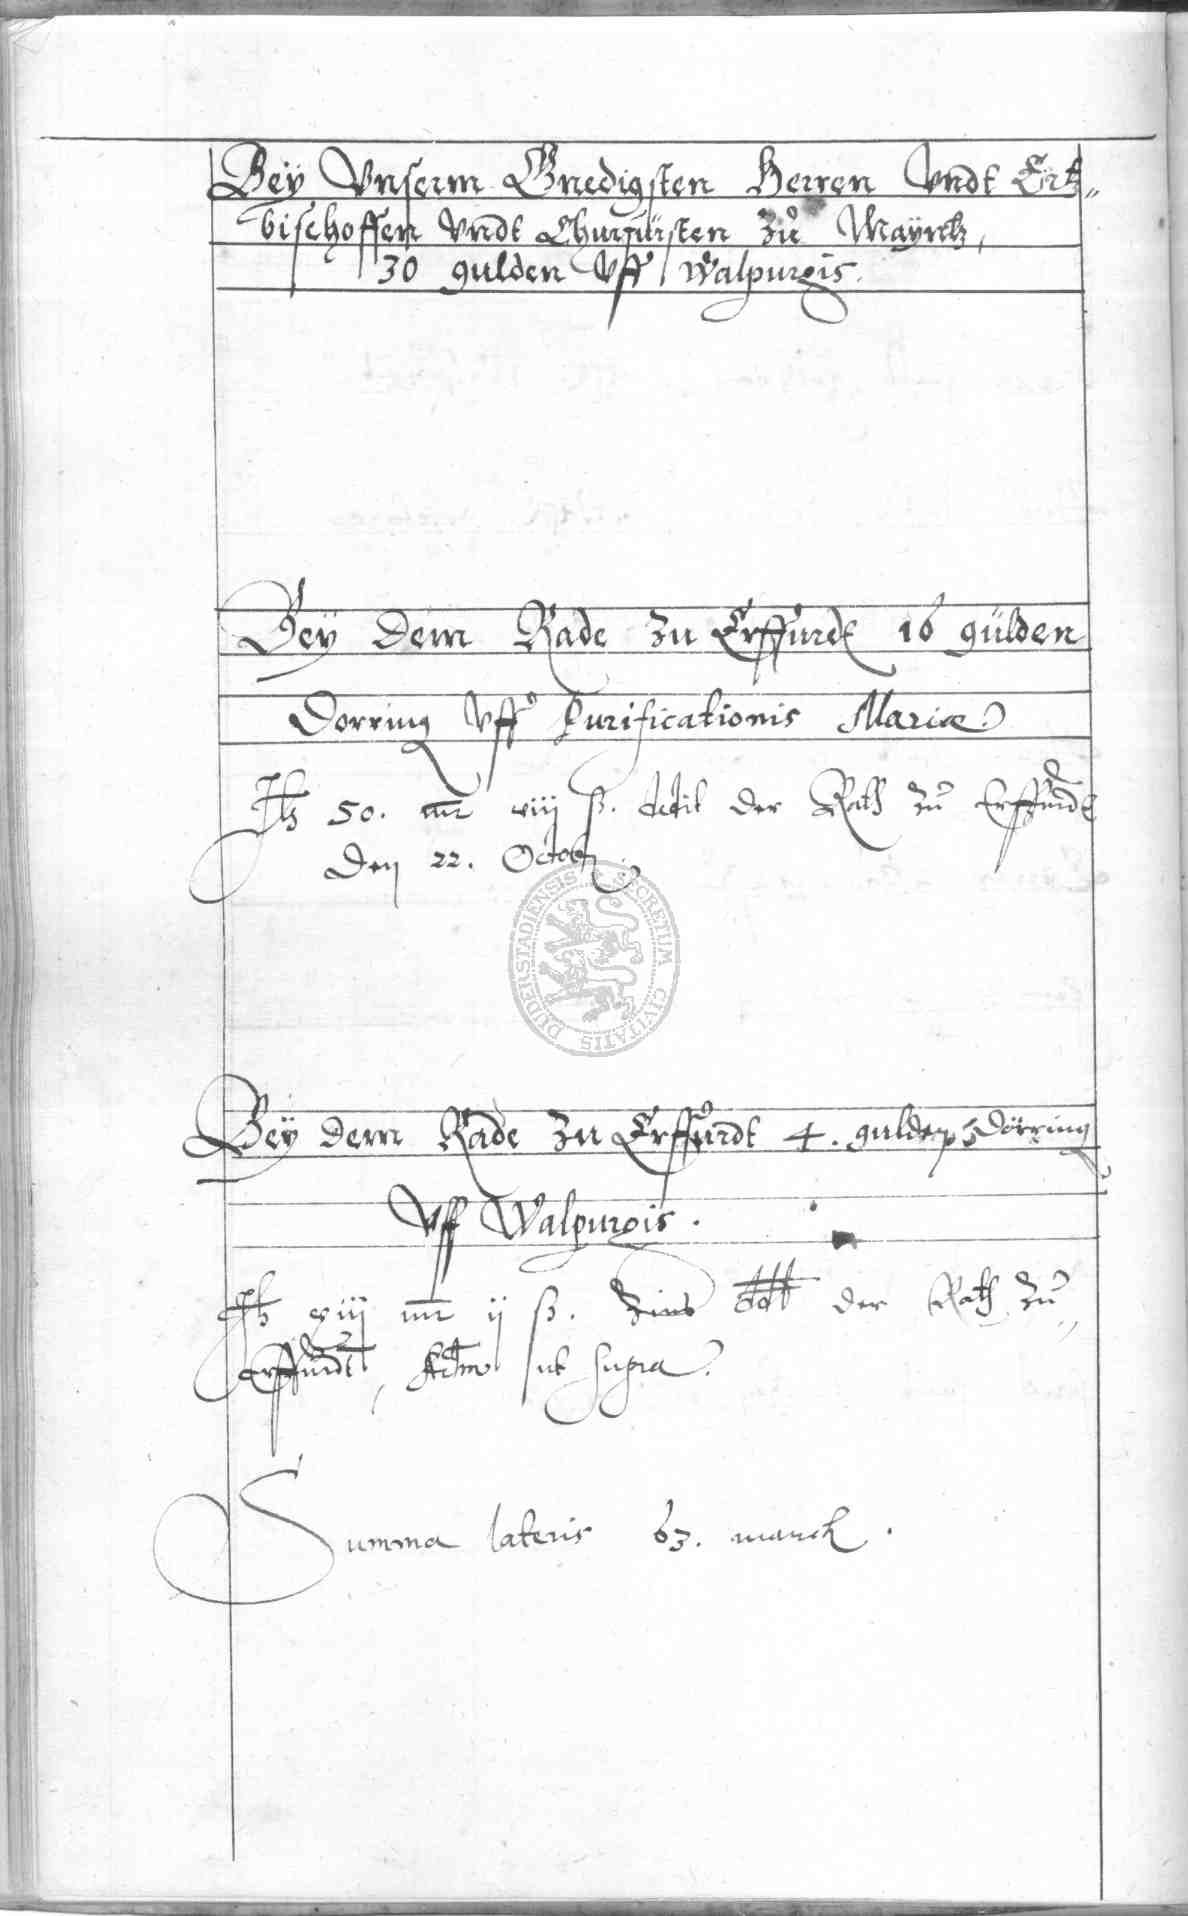 Beÿ Vnserm Gnedigsten Herren Vndt Ertz„
bischoffen Vndt Churfürsten zu Mayntz,
30 gulden Vff Walpurgis.
Beÿ Dem Rade zu Erffurdt 16 gülden
Dorring Vff Purificationis Mariæ
It 50. mr xiij ß. dedit der Rath zu Erffurdt
Den 22. Octob
DUDERSTADIENSIS SECRETUM CIVITATIS
Beÿ Dem Rade zu Erffurdt 4. gulden Dörring
Vff Walpurgis.
It xiij mr ij ß. Zins ddt der Rath zu
Erffurdt, ut supra.
Summa lateris 63. marck.